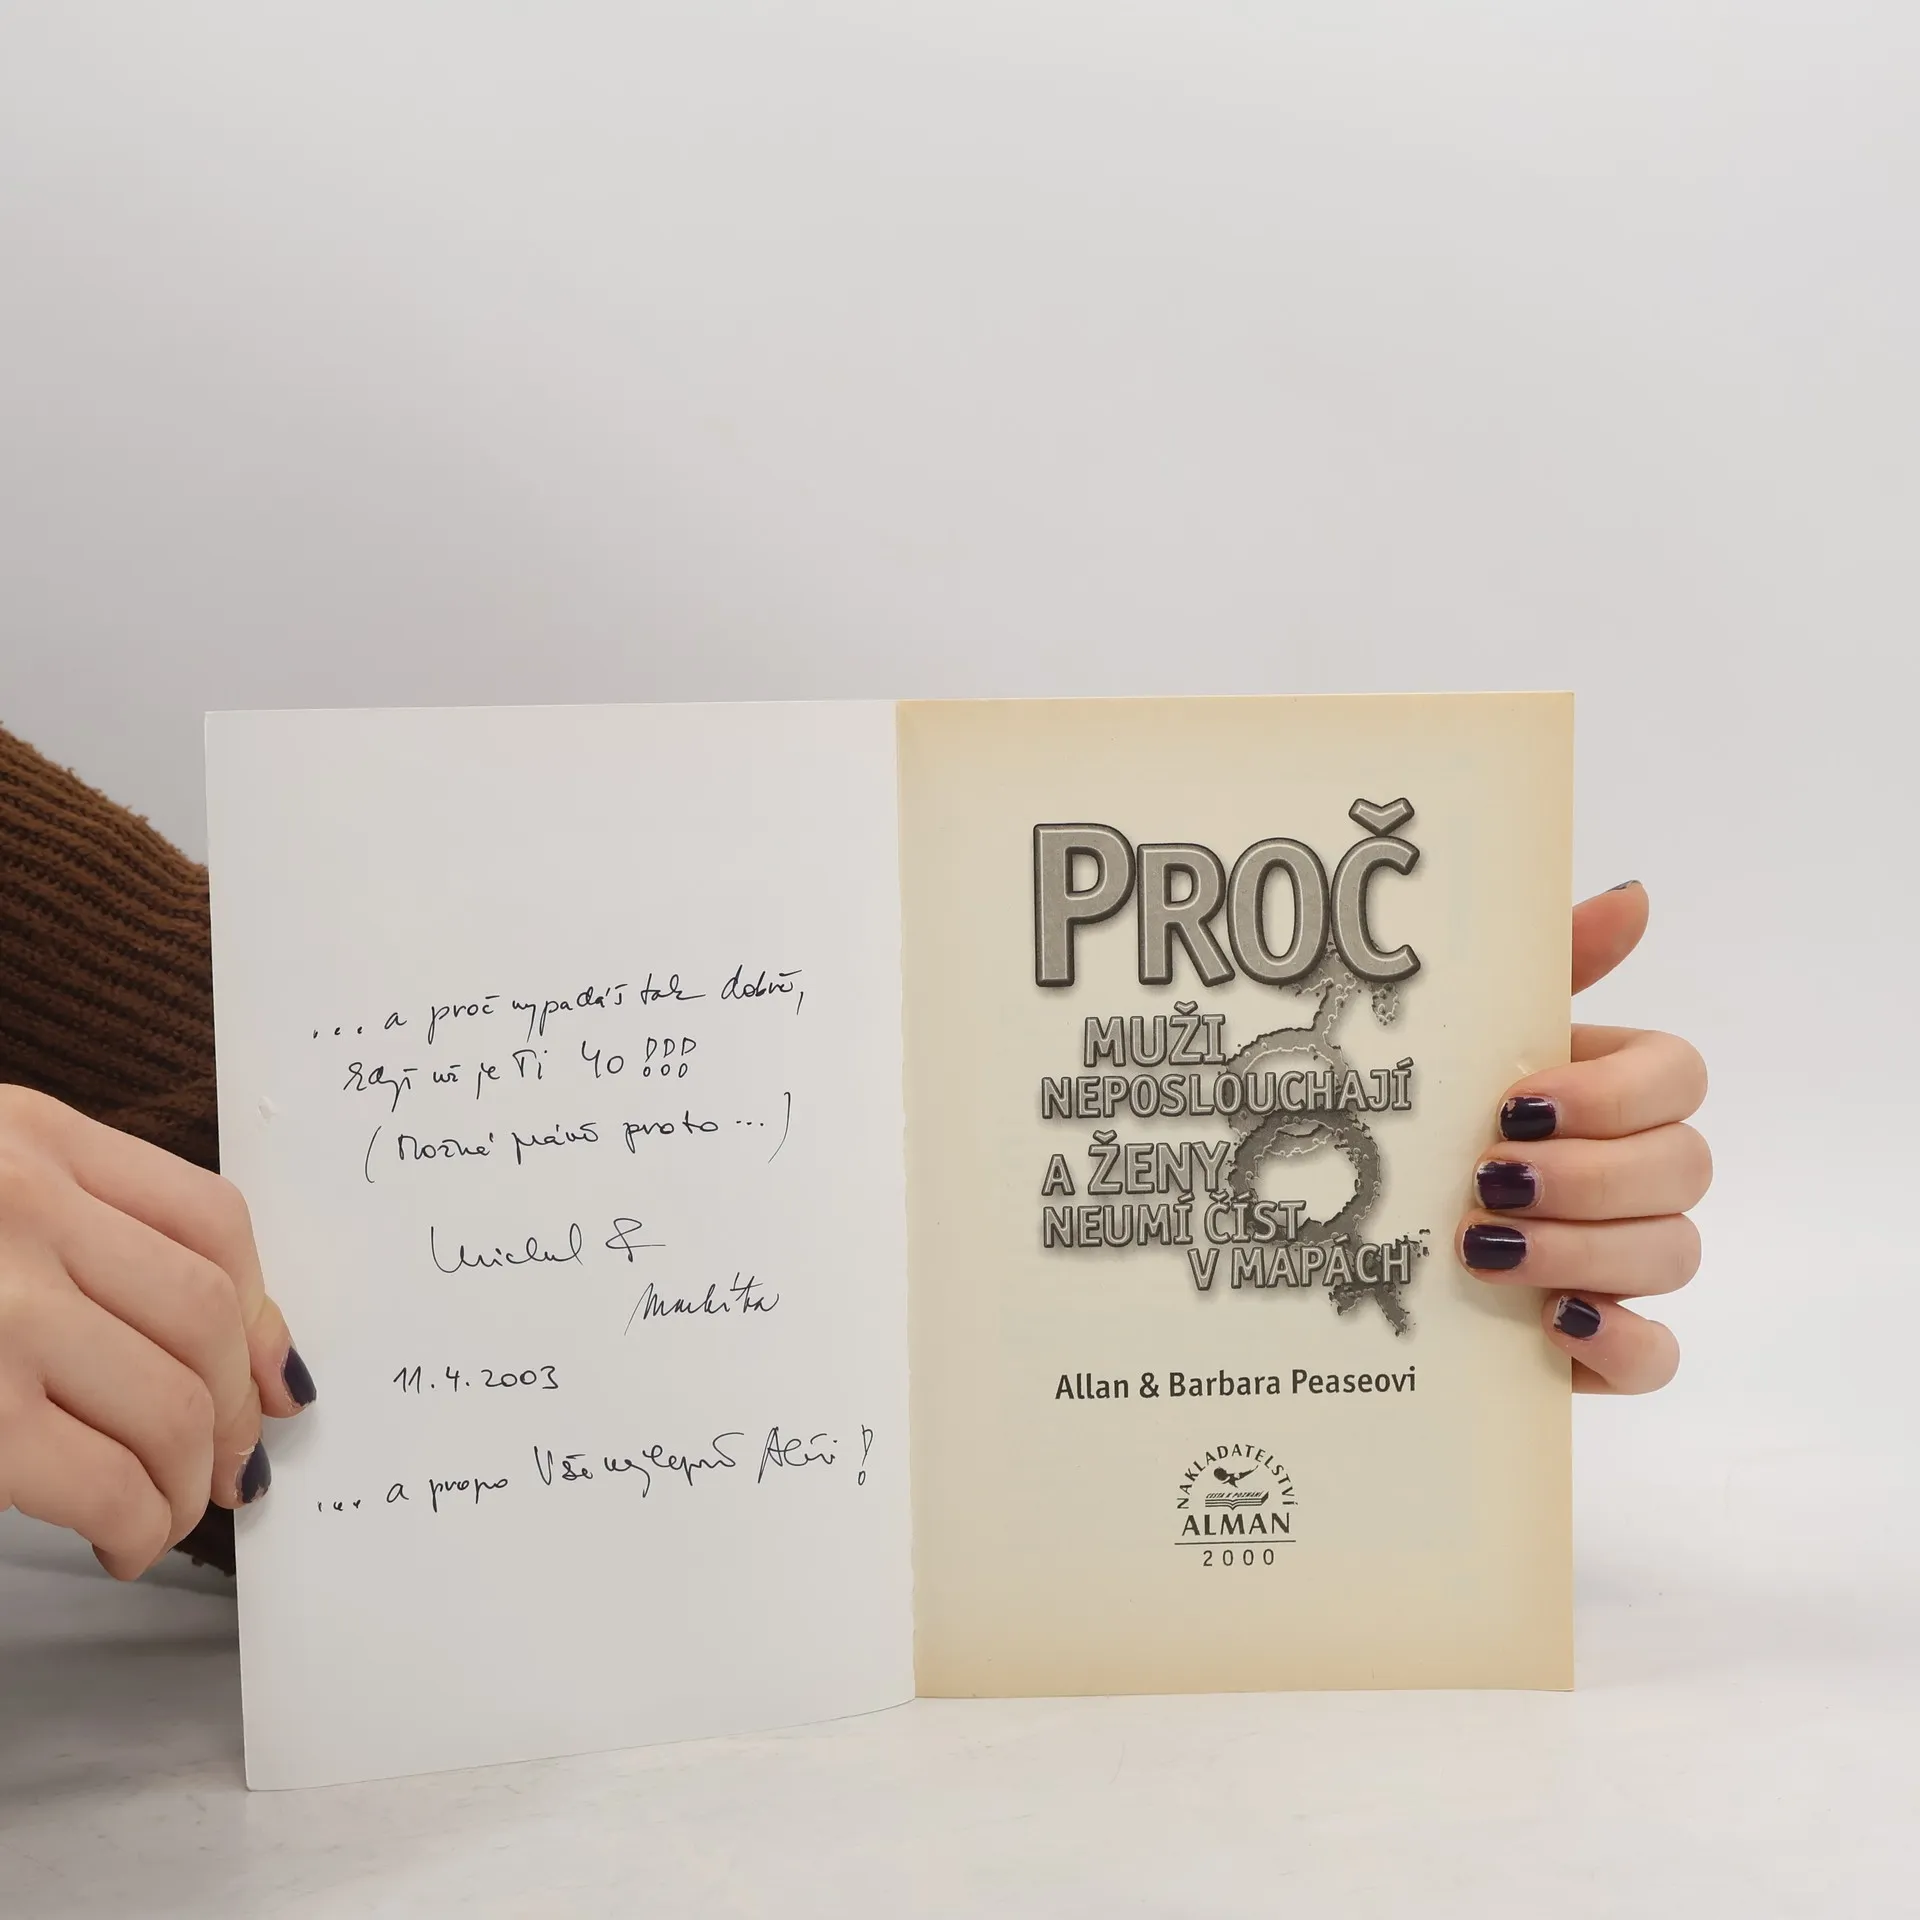 ... a proč vypadáš tak dobře,
když už je Ti 40 !!!
(Možná právě proto ...)
Michal &
Markéta
11.4.2003
... a propo Vše nejlepší
PROČ
MUŽI
NEPOSLOUCHAJÍ
A ŽENY
NEUMÍ ČÍST
V MAPÁCH
Allan & Barbara Peaseovi
NAKLADATELSTVÍ
CESTA K POZNÁNÍ
ALMAN
2000